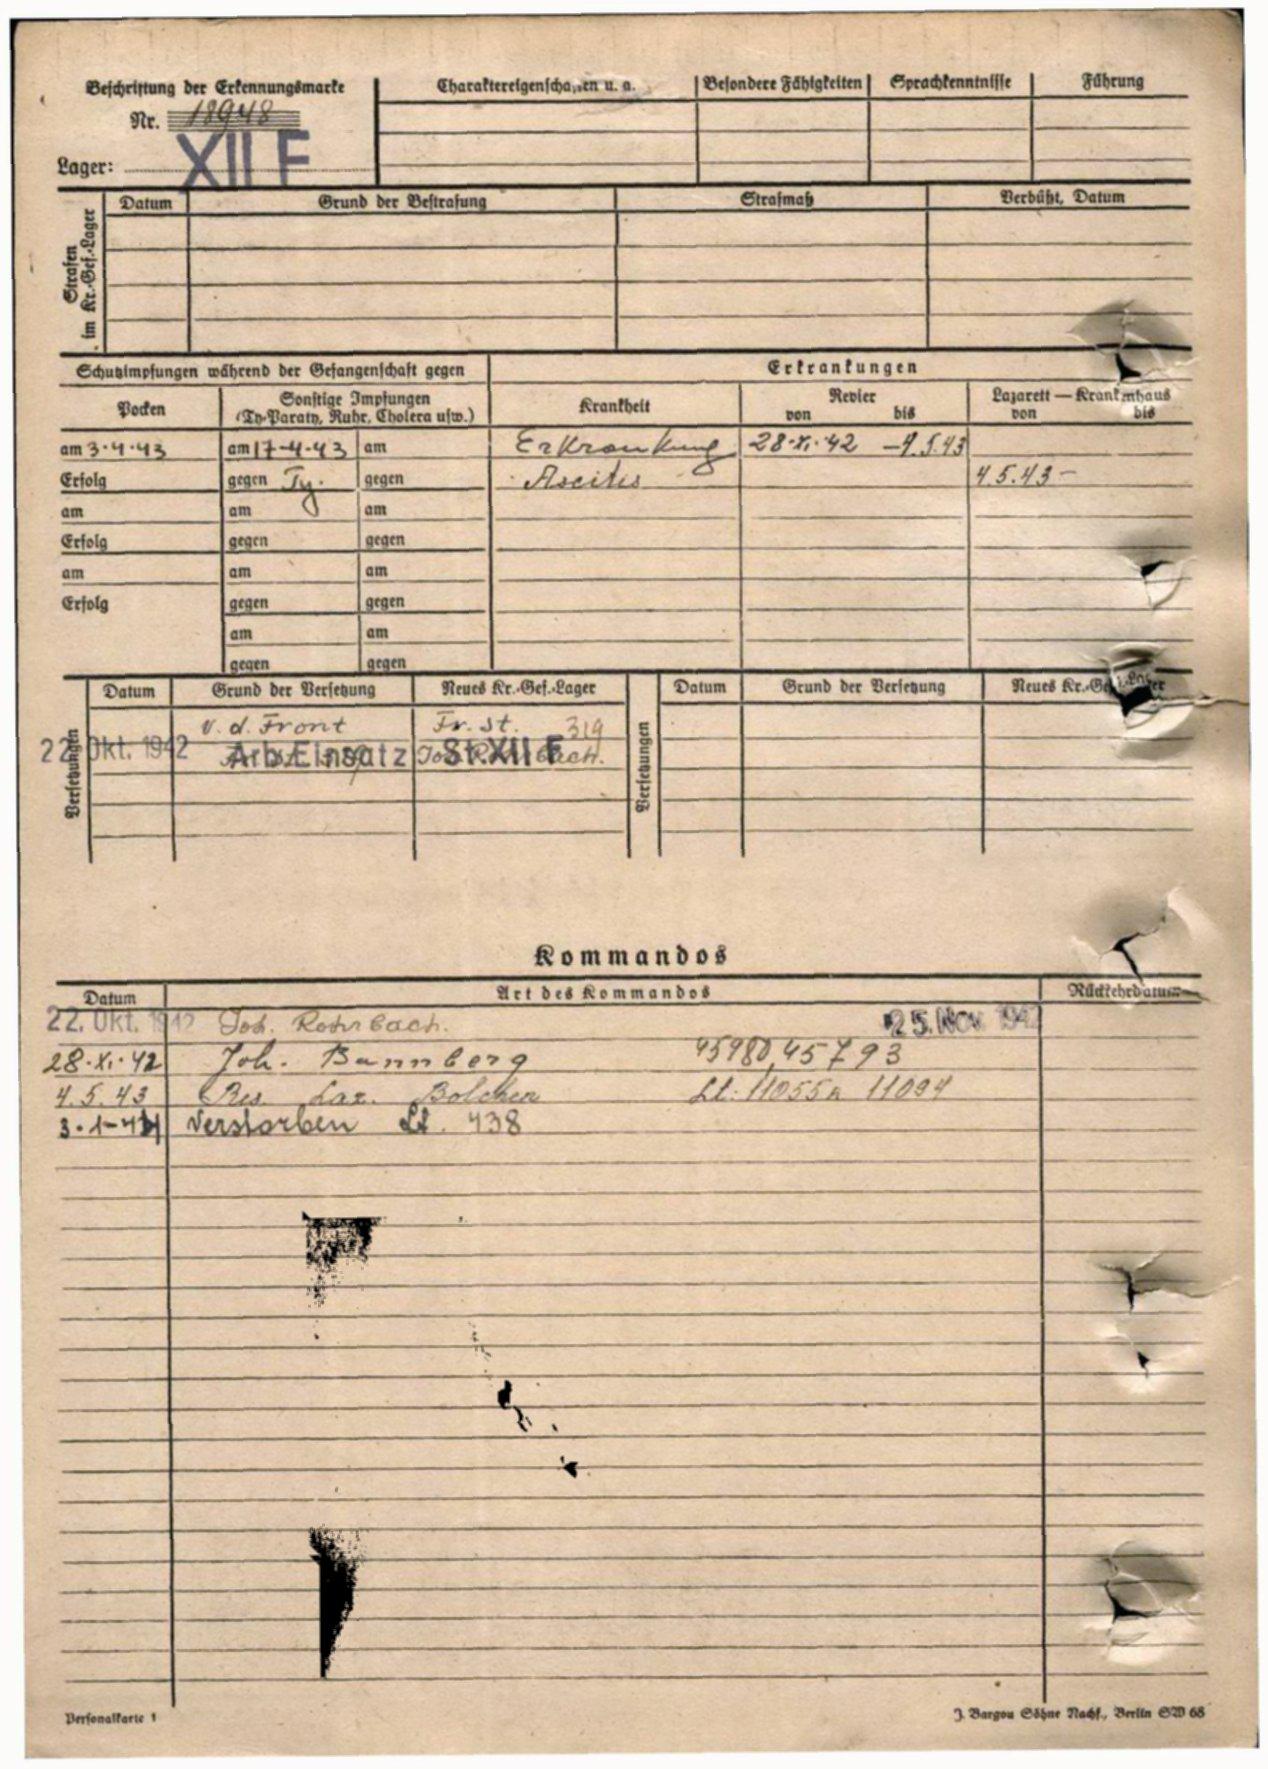 Beschriftung der Erkennungsmarke
Nr. 18948
Lager: XII F
Charaktereigenschaften u. a.
Besondere Fähigkeiten
Sprachkenntnisse
Führung
Strafen im Kr.-Gef.-Lager
Datum
Grund der Bestrafung
Strafmaß
Verbüßt, Datum
Schutzimpfungen während der Gefangenschaft gegen
Erkrankungen
Pocken
Sonstige Impfungen
(Ty-Paraty, Ruhr, Cholera usw.)
Krankheit
Revier
von bis
Lazarett — Krankenhaus
von bis
am 3.4.43 am 17-4-43 am Erkrankung 28.XI.42 – 4.5.43
Erfolg gegen Ty. gegen Ascites 4.5.43 –
am am am
Erfolg gegen gegen
am am am
Erfolg gegen gegen
am am
gegen gegen
Versetzungen
Datum Grund der Versetzung Neues Kr.-Gef.-Lager
v. d. Front Fr. St. 319
22. Okt. 1942 Arb. Einsatz St. XII F
Versetzungen
Datum Grund der Versetzung Neues Kr.-Gef.-Lager
Kommandos
Datum Art des Kommandos Rückkehrdatum
22. Okt. 1942 Joh. Rohrbach. 25. Nov. 1942
28.XI.42 Joh. Bannberg 45980, 45793
4.5.43 Res. Laz. Bolchen Lt: 11055 11094
3.1-44 Verstorben Lt. 438
Personalkarte 1
J. Bargou Söhne Nachf., Berlin SW 68